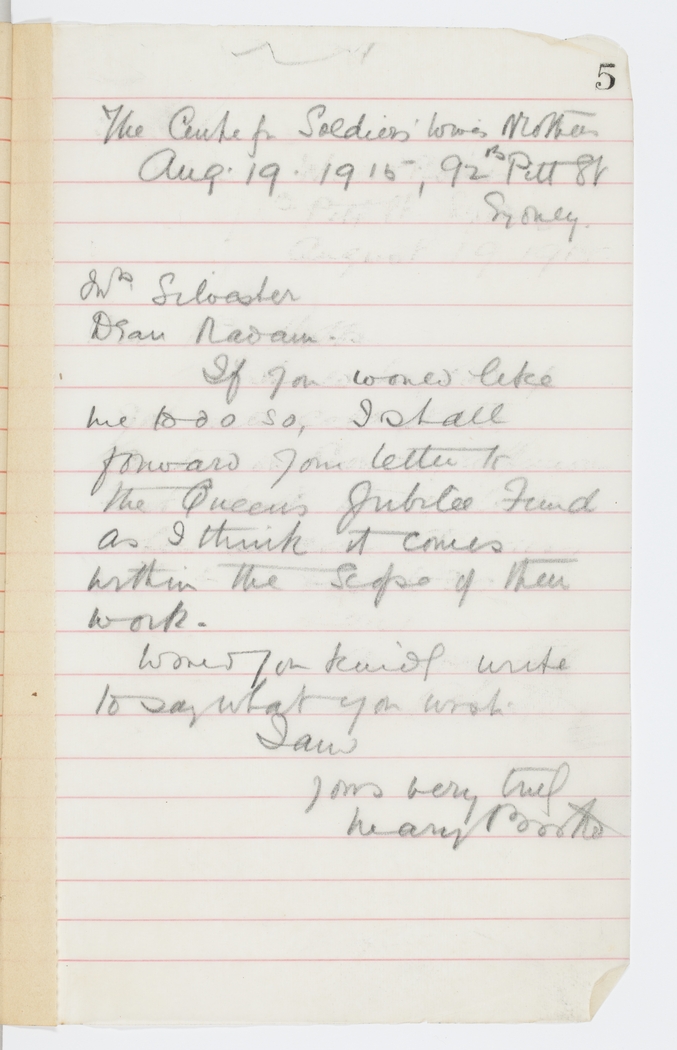 5
The Centre for Soldiers' Wives Mothers
Aug. 19. 1915, 92b Pitt St
Sydney.
Mrs Silvester
Dear Madam.
If you would like
me to do so, I shall
forward your letter to
the Queen's Jubilee Fund
as I think it comes
within the scope of their
work.
Would you kindly write
to say what you wish.
I am
yours very truly
Mary Booth